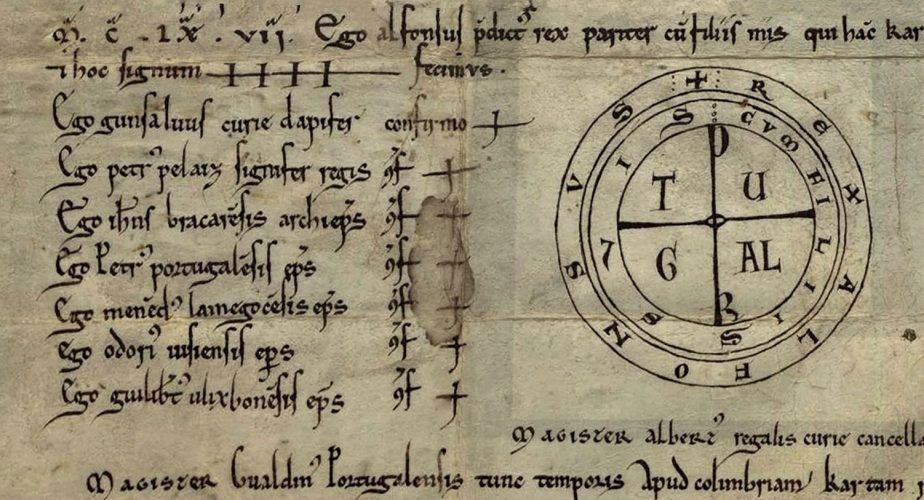 M. C. LX. VII. Ego alfonsus p̄dictus rex pariter cū filiis mis qui hāc kar
i hoc signum fecimus.
Ego gunsaluus curie dapifer confirmo
Ego petrꝰ pelaiz signifer regis ꝯf
Ego ioh̄ns bracarēsis archiep̄s ꝯf
Ego Petrꝰ portugalēsis ep̄s ꝯf
Ego menēdꝰ lamegocēsis ep̄s ꝯf
Ego odoriꝰ uisiensis ep̄s ꝯf
Ego ulixbonēsis ep̄s ꝯf
+ REX ALFONSVS
CVM FILIIS SVIS
P O R T U G AL
MAGISTER albertꝰ regalis curie cancella
MAGISTER bualdinꝰ Portugalensis tunc temporis Apud colimbriam kartam